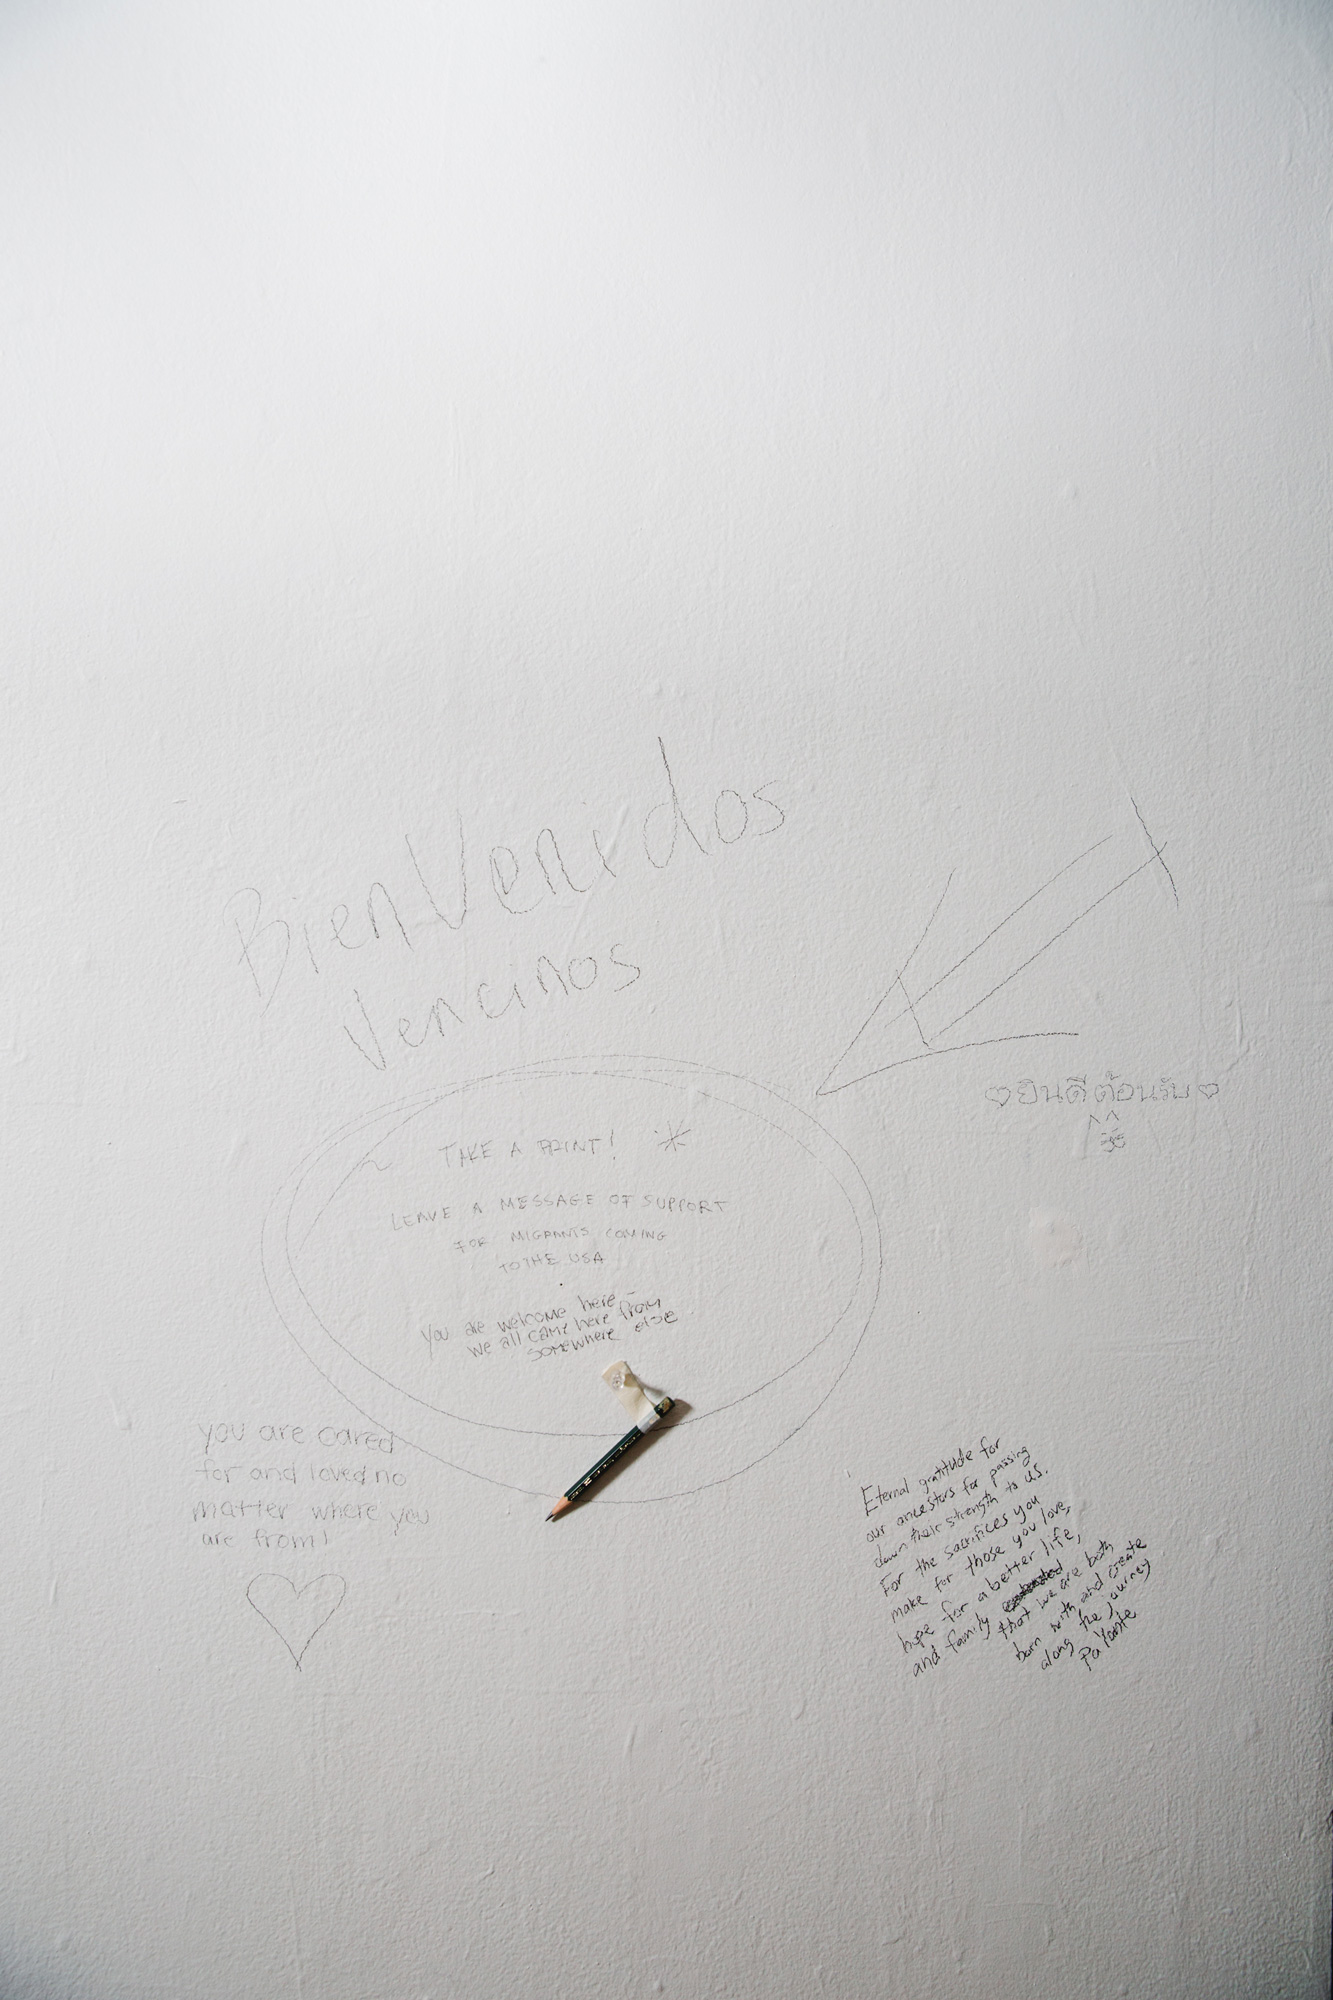 BienVenidos
Vencinos
TAKE A PRINT!
LEAVE A MESSAGE OF SUPPORT
FOR MIGRANTS COMING
TO THE USA
you are welcome here –
we all came here from
somewhere else
ยินดีต้อนรับ
you are cared
for and loved no
matter where you
are from!
Eternal gratitude for
our ancestors for passing
down their strength to us.
For the sacrifices you
make for those you love,
hope for a better life,
and family that we are both
born with and create
along the journey
Pa'lante